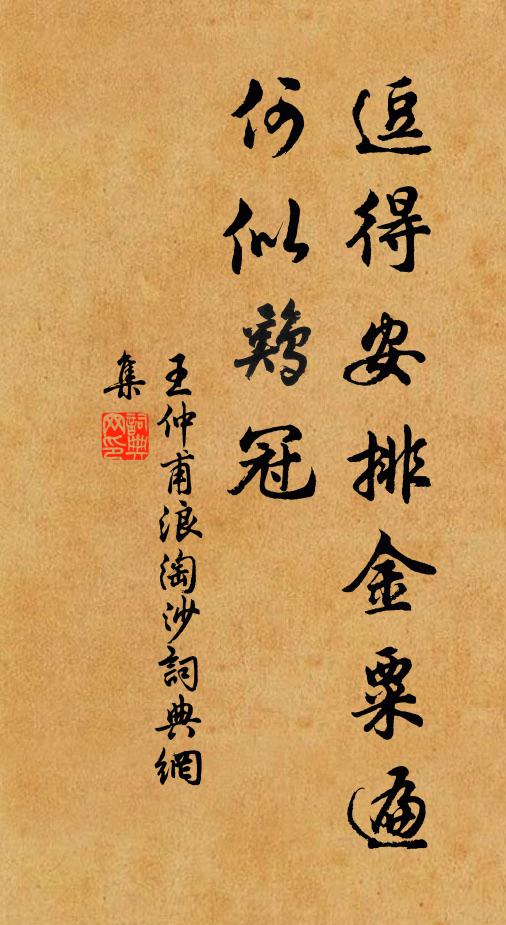 逗得安排金粟遍
何似鷄冠
王仲甫浪淘沙詞典網
集
詞典網印